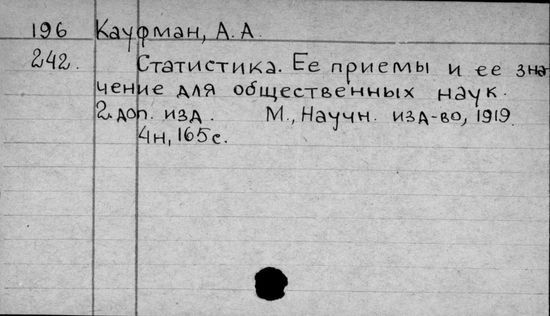 196 Кауфман, А. А.
242. Статистика. Ее приемы и ее зна-
чение для общественных наук.
2. доп. изд. М., Научн. изд-во, 1919.
4н, 165с.